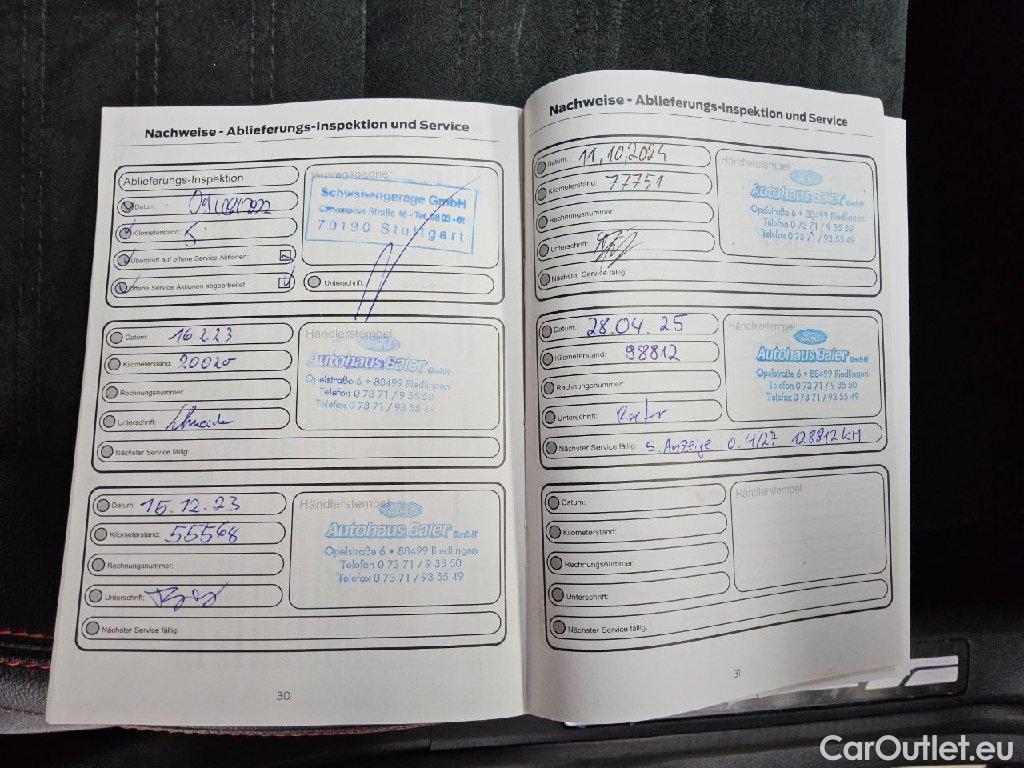 Nachweise - Ablieferungs-Inspektion und Service
Ablieferungs-Inspektion
Datum:
Kilometerstand: 5
Überprüft auf offene Service Aktionen:
Offene Service Aktionen abgearbeitet
Vertragspartner
Schwabengarage GmbH
Cannstatter Straße 46 • Tel. 28 03 - 01
70190 Stuttgart
Unterschrift:
Datum: 16 2 23
Kilometerstand: 20020
Rechnungsnummer:
Unterschrift:
Nächster Service fällig:
Händlerstempel
Ford
Autohaus Baier GmbH
Opelstraße 6 • 88499 Riedlingen
Telefon 0 73 71 / 9 35 50
Telefax 0 73 71 / 93 55 49
Datum: 15.12.23
Kilometerstand: 55568
Rechnungsnummer:
Unterschrift:
Nächster Service fällig:
Händlerstempel
Ford
Autohaus Baier GmbH
Opelstraße 6 • 88499 Riedlingen
Telefon 0 73 71 / 9 35 50
Telefax 0 73 71 / 93 55 49
30
Nachweise - Ablieferungs-Inspektion und Service
Datum: 11.10.2024
Kilometerstand: 77751
Rechnungsnummer:
Unterschrift:
Nächster Service fällig:
Händlerstempel
Ford
Autohaus Baier GmbH
Opelstraße 6 • 88499 Riedlingen
Telefon 0 73 71 / 9 35 50
Telefax 0 73 71 / 93 55 49
Datum: 28.04.25
Kilometerstand: 98812
Rechnungsnummer:
Unterschrift:
Nächster Service fällig: S. Anzeige o. 4/27 128812 KM
Händlerstempel
Ford
Autohaus Baier GmbH
Opelstraße 6 • 88499 Riedlingen
Telefon 0 73 71 / 9 35 50
Telefax 0 73 71 / 93 55 49
Datum:
Kilometerstand:
Rechnungsnummer:
Unterschrift:
Nächster Service fällig:
Händlerstempel
31
CarOutlet.eu